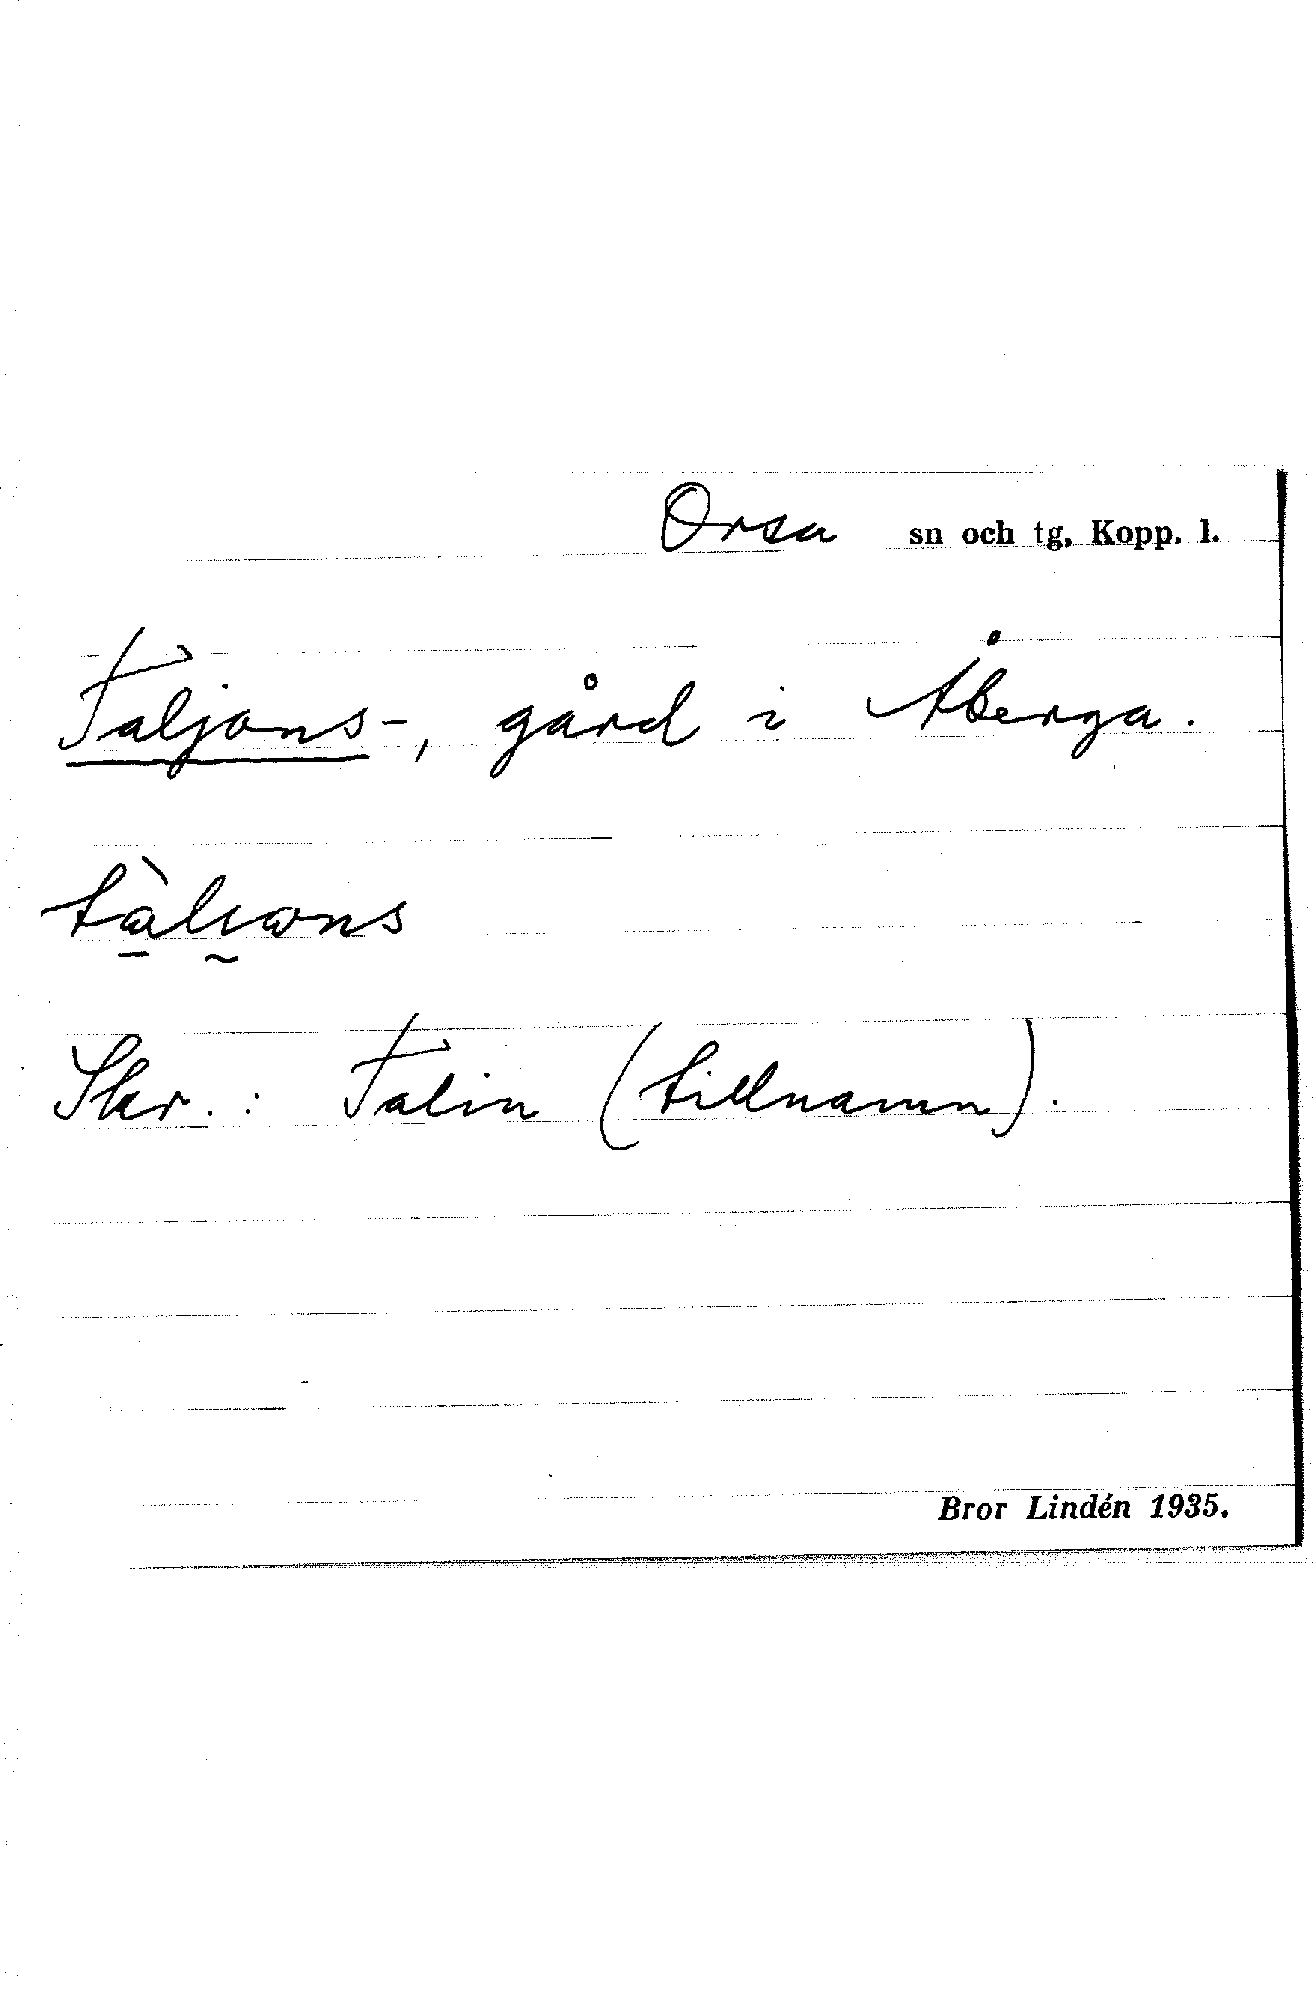 Orsa sn och tg, Kopp. l.
Taljons-, gård i Åberga.
tàlıons
Skr.: Talin (tillnamn).
Bror Lindén 1935.